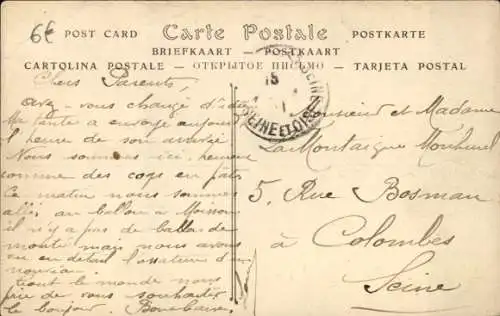 6€
POST CARD
Carte Postale
POSTKARTE
BRIEFKAART — POSTKAART
CARTOLINA POSTALE — ОТКРЫТОЕ ПИСЬМО — TARJETA POSTAL
SEINE ET OISE
15
Chers Parents,
Avez-vous changé d'idée
Ma tante a envoyé aujourd
l heure de son arrivée
Nous sommes ici, heureux
comme des coqs en pate
Ce matin nous sommes
allés au ballon à Moisson
il n'y a pas de ballon de
monté mais nous avons
vu en detail l'
nouveau
tout le monde nous
prie de vous souhaiter
le bonjour. Bons baisers
Monsieur et Madame
5, Rue Bosman
à Colombes
Seine